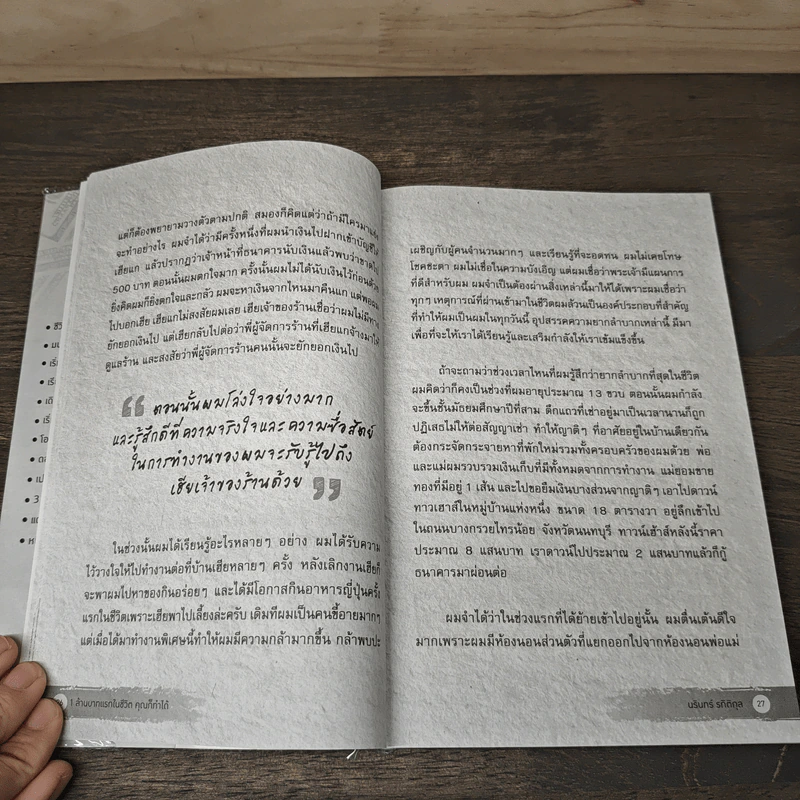 แต่ก็ต้องพยายามวางตัวตามปกติ สมองก็คิดแต่ว่าถ้ามีใครมา
จะทำอย่างไร ผมจำได้ว่ามีครั้งหนึ่งที่ผมนำเงินไปฝากเข้าบัญชีให้
เฮียแกก แล้วปรากฏว่าเจ้าหน้าที่ธนาคารนับเงินแล้วพบว่าขาดไป
500 บาท ตอนนั้นผมตกใจมาก ครั้งนั้นผมไม่ได้นับเงินไว้ก่อนด้วย
ยิ่งคิดผมก็ยิ่งตกใจและกลัว ผมจะหาเงินจากไหนมาคืนแก แต่พอผม
ไปบอกเฮีย เฮียแกไม่สงสัยผมเลย เฮียเจ้าของร้านเชื่อว่าผมไม่มีทาง
ยักยอกเงินไป แต่เฮียกลับไปต่อว่าพี่ผู้จัดการร้านที่เฮียแกจ้างมาให้
ดูแลร้าน และสงสัยว่าพี่ผู้จัดการร้านคนนั้นจะยักยอกเงินไป
“ ตอนนั้นผมโล่งใจอย่างมาก
และรู้สึกดีที่ความจริงใจและความซื่อสัตย์
ในการทำงานของผมจะรับรู้ไปถึง
เฮียเจ้าของร้านด้วย ”
ในช่วงนั้นผมได้เรียนรู้อะไรหลายๆ อย่าง ผมได้รับความ
ไว้วางใจให้ไปทำงานต่อที่บ้านเฮียหลายๆ ครั้ง หลังเลิกงานเฮียก็
จะพาผมไปหาของกินอร่อยๆ และได้มีโอกาสกินอาหารญี่ปุ่นครั้ง
แรกในชีวิตเพราะเฮียพาไปเลี้ยงล่ะครับ เดิมทีผมเป็นคนขี้อายมากๆ
แต่เมื่อได้มาทำงานพิเศษนี้ทำให้ผมมีความกล้ามากขึ้น กล้าพบปะ
1 ล้านบาทแรกในชีวิต คุณก็ทำได้
เผชิญกับผู้คนจำนวนมากๆ และเรียนรู้ที่จะอดทน ผมไม่เคยโทษ
โชคชะตา ผมไม่เชื่อในความบังเอิญ แต่ผมเชื่อว่าพระเจ้ามีแผนการ
ที่ดีสำหรับผม ผมจำเป็นต้องผ่านสิ่งเหล่านี้มาให้ได้เพราะผมเชื่อว่า
ทุกๆ เหตุการณ์ที่ผ่านเข้ามาในชีวิตผมล้วนเป็นองค์ประกอบที่สำคัญ
ที่ทำให้ผมเป็นผมในทุกวันนี้ อุปสรรคความยากลำบากเหล่านี้ มีมา
เพื่อที่จะให้เราได้เรียนรู้และเสริมกำลังให้เราเข้มแข็งขึ้น
ถ้าจะถามว่าช่วงเวลาไหนที่ผมรู้สึกว่ายากลำบากที่สุดในชีวิต
ผมคิดว่าก็คงเป็นช่วงที่ผมอายุประมาณ 13 ขวบ ตอนนั้นผมกำลัง
จะขึ้นชั้นมัธยมศึกษาปีที่สาม ตึกแถวที่เช่าอยู่มาเป็นเวลานานก็ถูก
ปฏิเสธไม่ให้ต่อสัญญาเช่า ทำให้ญาติๆ ที่อาศัยอยู่ในบ้านเดียวกัน
ต้องกระจัดกระจายหาที่พักใหม่รวมทั้งครอบครัวของผมด้วย พ่อ
และแม่ผมรวบรวมเงินเก็บที่มีทั้งหมดจากการทำงาน แม่ยอมขาย
ทองที่มีอยู่ 1 เส้น และไปขอยืมเงินบางส่วนจากญาติๆ เอาไปดาวน์
ทาวเฮาส์ในหมู่บ้านแห่งหนึ่ง ขนาด 18 ตารางวา อยู่ลึกเข้าไป
ในถนนบางกรวยไทรน้อย จังหวัดนนทบุรี ทาวน์เฮ้าส์หลังนี้ราคา
ประมาณ 8 แสนบาท เราดาวน์ไปประมาณ 2 แสนบาทแล้วก็กู้
ธนาคารมาผ่อนต่อ
ผมจำได้ว่าในช่วงแรกที่ได้ย้ายเข้าไปอยู่นั้น ผมตื่นเต้นดีใจ
มากเพราะผมมีห้องนอนส่วนตัวที่แยกออกไปจากห้องนอนพ่อแม่
นรินทร์ รกิติกุล 27